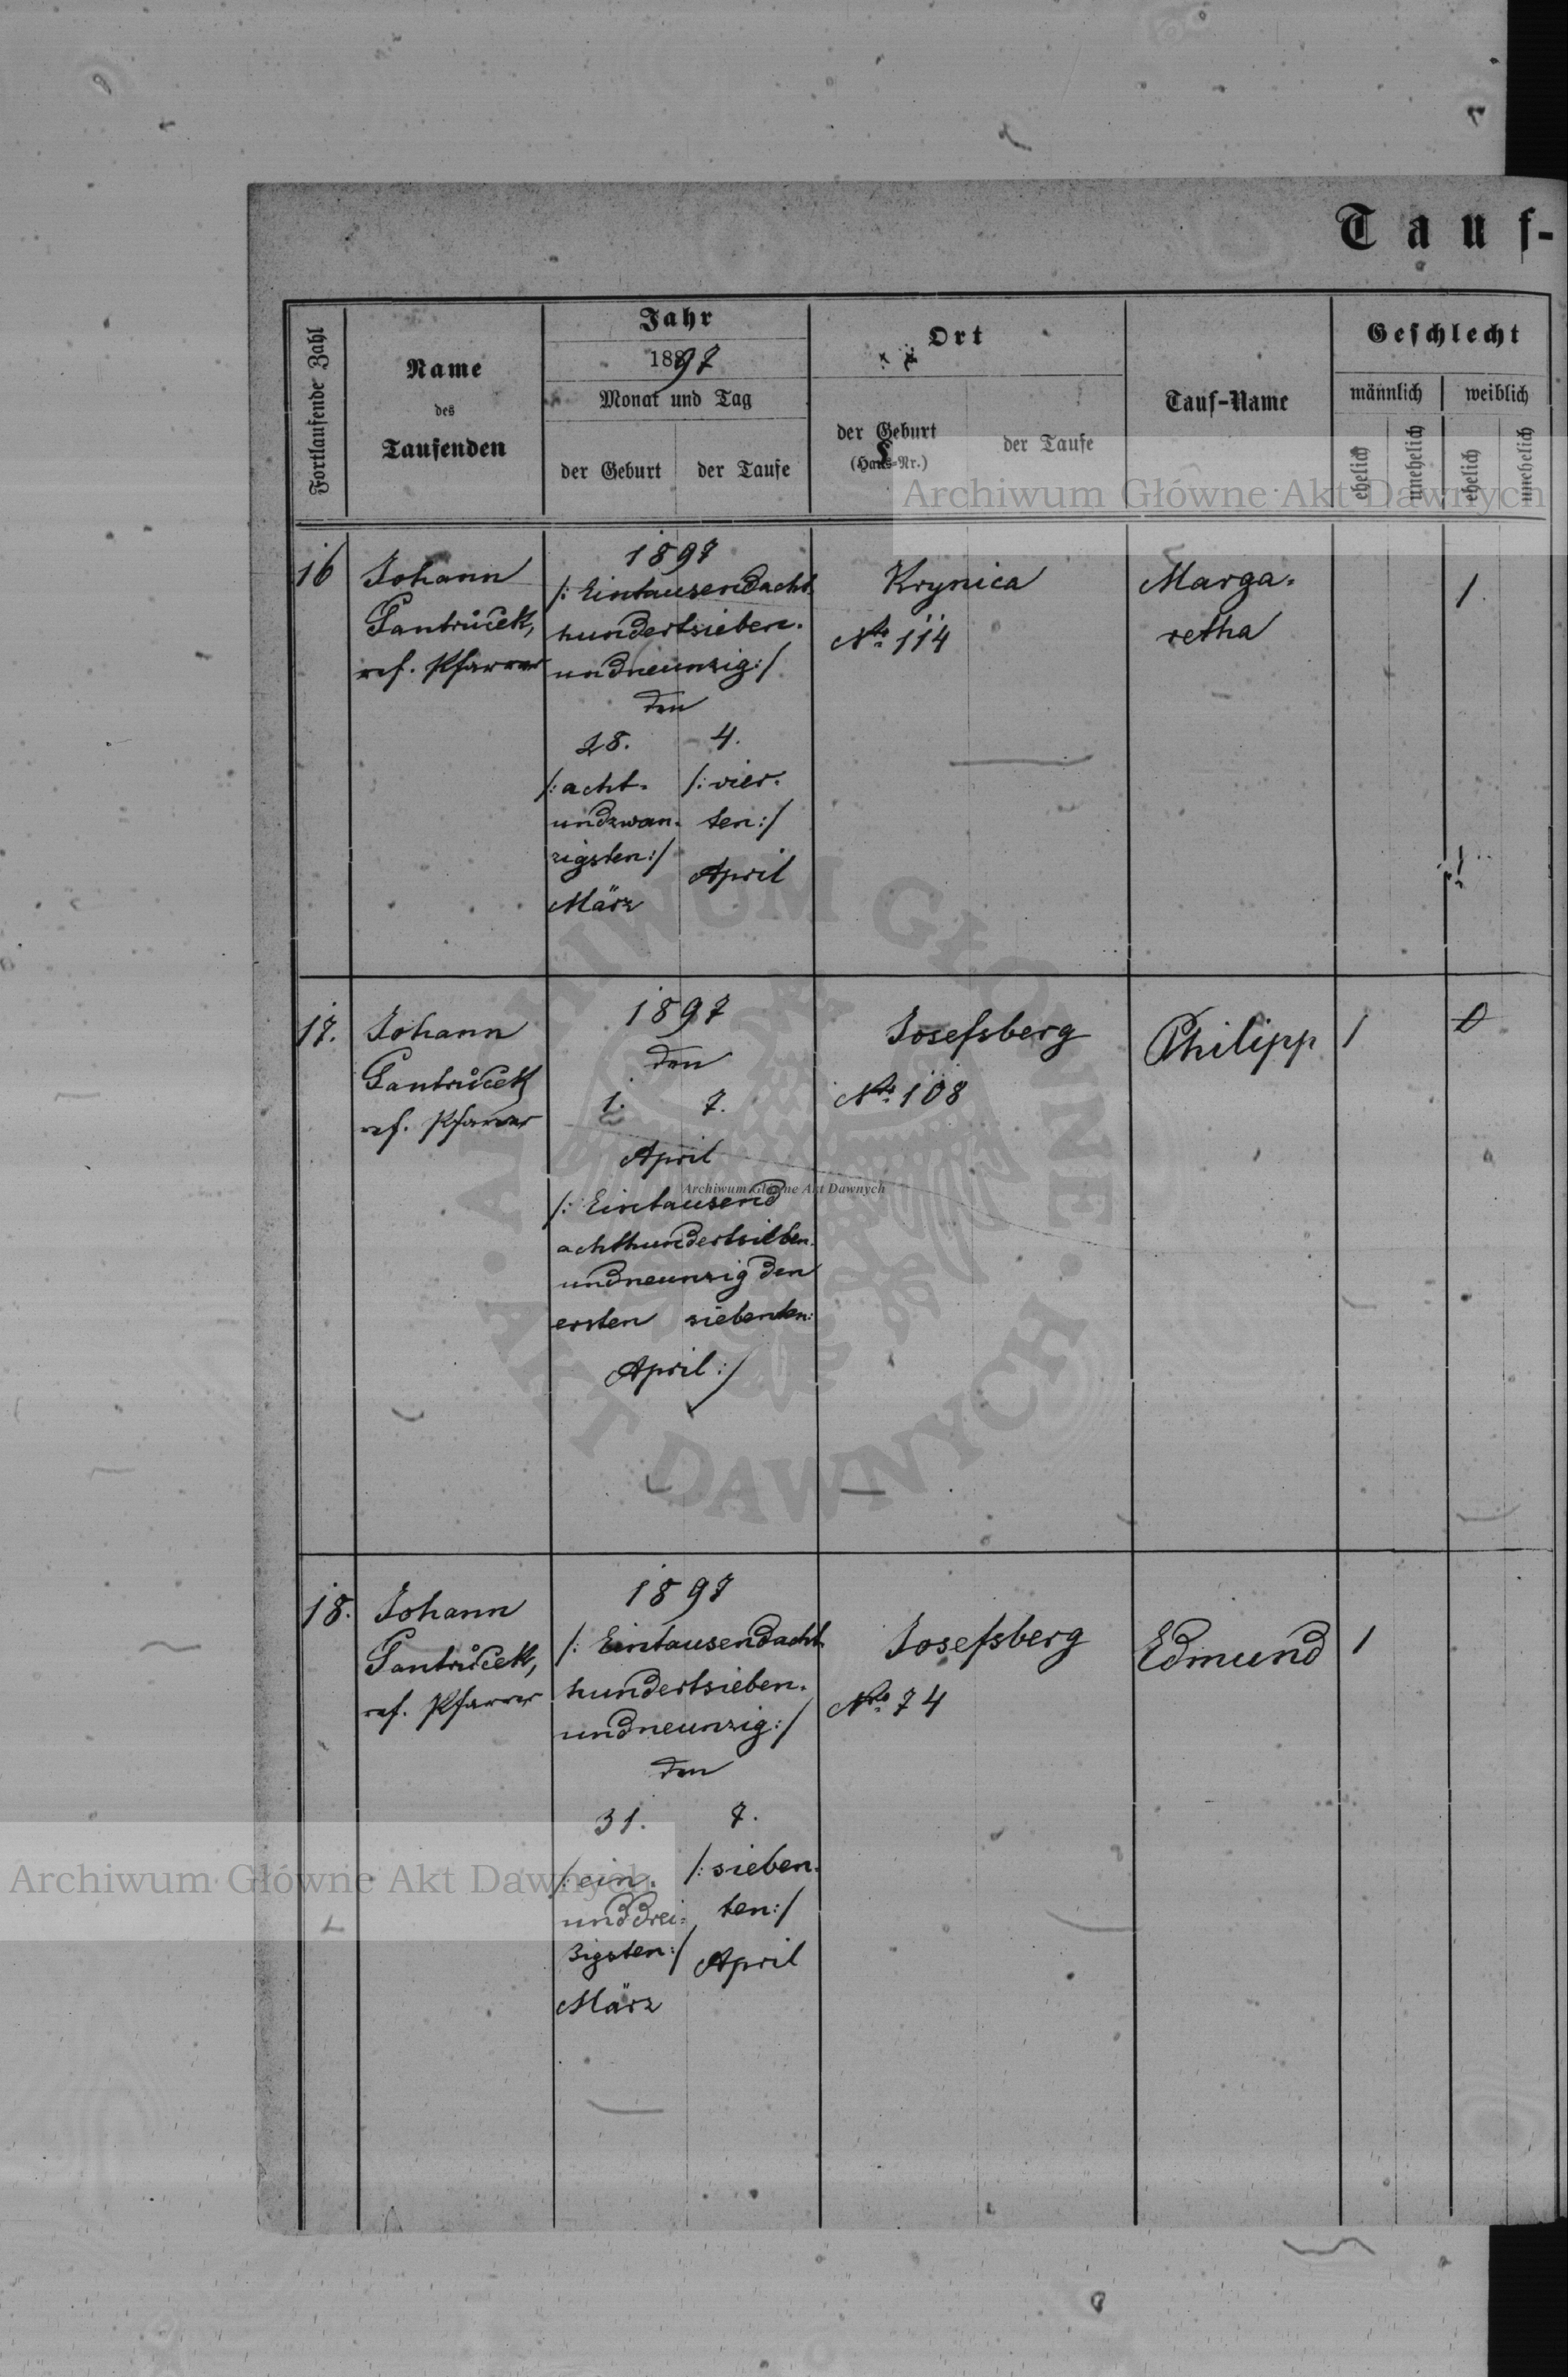 Tauf-
Fortlaufende Zahl
Name
des
Taufenden
Jahr
1897
Monat und Tag
der Geburt
der Taufe
Ort
der Geburt
(Haus-Nr.)
der Taufe
Tauf-Name
Geschlecht
männlich
weiblich
ehelich
unehelich
ehelich
unehelich
Archiwum Główne Akt Dawnych
16
Johann
Jantůček,
ref. Pfarrer
1897
/: Eintausendacht-
hundertsieben-
undneunzig :/
den
28.
/: acht-
undzwan-
zigsten :/
März
4.
/: vier-
ten :/
April
Krynica
Nro 114
Marga-
retha
1
17.
Johann
Jantůček
ref. Pfarrer
1897
den
1. 7.
April
/: Eintausend
achthundertsieben-
undneunzig den
ersten siebenten
April :/
Josefsberg
Nro 108
Philipp
1
Archiwum Główne Akt Dawnych
18.
Johann
Jantůček,
ref. Pfarrer
1897
/: Eintausendacht-
hundertsieben-
undneunzig :/
den
31.
/: ein-
unddrei-
zigsten :/
März
7.
/: sieben-
ten :/
April
Josefsberg
Nro 74
Edmund
1
Archiwum Główne Akt Dawnych
ARCHIWUM GŁÓWNE
AKT DAWNYCH